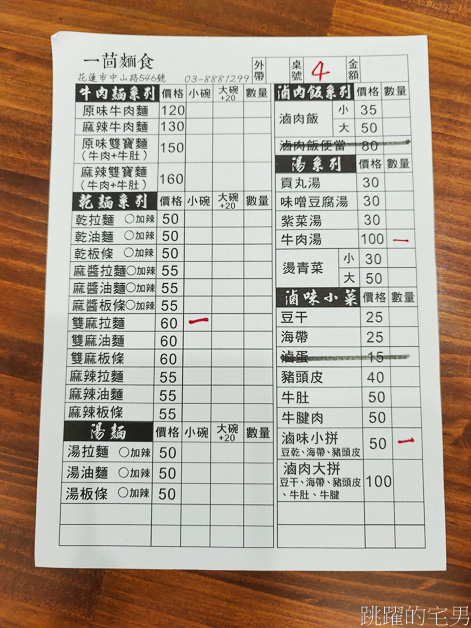 一茴麵食
花蓮市中山路546號 03-8881299
外帶 桌號 4 金額
牛肉麵系列 價格 小碗 大碗+20 數量
原味牛肉麵 120
麻辣牛肉麵 130
原味雙寶麵 150
(牛肉+牛肚)
麻辣雙寶麵 160
(牛肉+牛肚)
乾麵系列 價格 小碗 大碗+20 數量
乾拉麵 ○加辣 50
乾油麵 ○加辣 50
乾板條 ○加辣 50
麻醬拉麵○加辣 55
麻醬油麵○加辣 55
麻醬板條○加辣 55
雙麻拉麵 60 一
雙麻油麵 60
雙麻板條 60
麻辣拉麵 55
麻辣油麵 55
麻辣板條 55
湯麵 價格 小碗 大碗+20 數量
湯拉麵 ○加辣 50
湯油麵 ○加辣 50
湯板條 ○加辣 50
滷肉飯系列 價格 數量
滷肉飯 小 35
大 50
滷肉飯便當 80
湯系列 價格 數量
貢丸湯 30
味噌豆腐湯 30
紫菜湯 30
牛肉湯 100 一
燙青菜 小 30
大 50
滷味小菜 價格 數量
豆干 25
海帶 25
滷蛋 15
豬頭皮 40
牛肚 50
牛腱肉 50
滷味小拼 50 一
豆乾、海帶、豬頭皮
滷肉大拼 100
豆干、海帶、豬頭皮
、牛肚、牛腱
跳躍的宅男